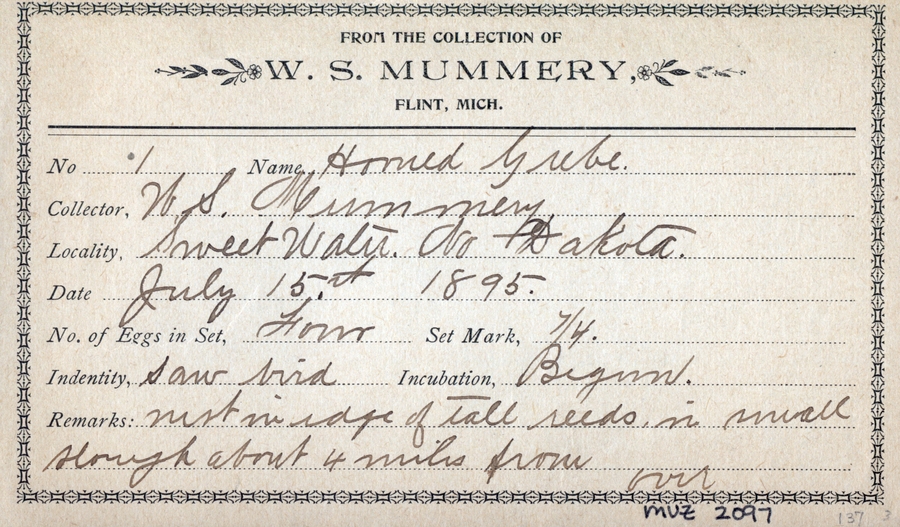 FROM THE COLLECTION OF
W. S. MUMMERY,
FLINT, MICH.
No 1 Name, Horned Grebe.
Collector, W. S. Mummery
Locality, Sweet Water. No Dakota.
Date July 15.st 1895.
No. of Eggs in Set, Four Set Mark, 7/4.
Indentity, saw bird Incubation, Begun.
Remarks: nest in edge of tall reeds. in small
slough about 4 miles from
over
MVZ 2097
137 3